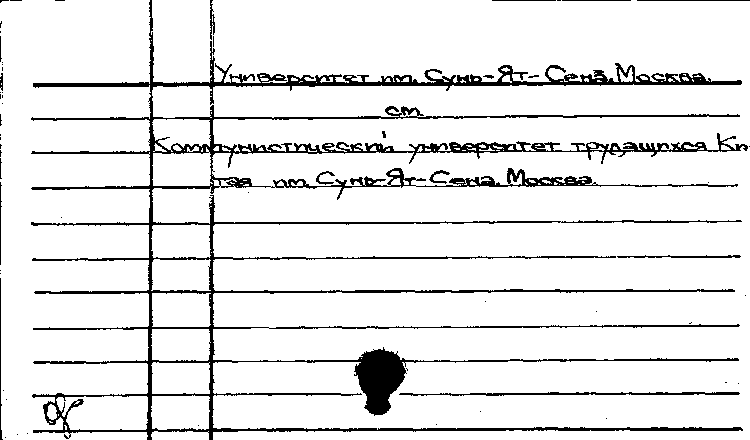 Университет им. Сунь-Ят-Сена. Москва.
см
Коммунистический университет трудящихся Ки-
тая им. Сунь-Ят-Сена. Москва.